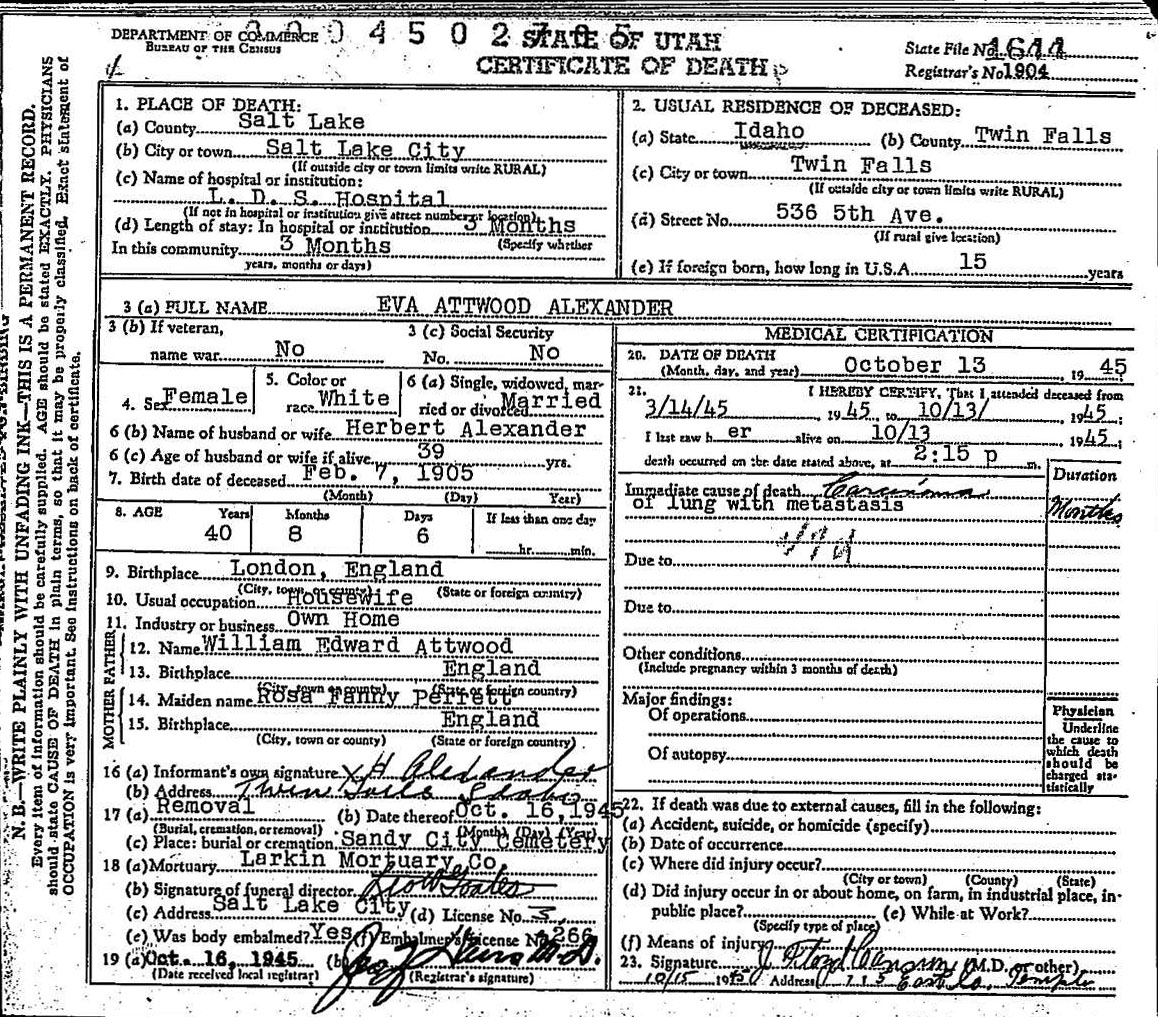 DEPARTMENT OF COMMERCE
BUREAU OF THE CENSUS
04502
STATE OF UTAH
CERTIFICATE OF DEATH
State File No. 1611
Registrar's No 1904
N. B.—WRITE PLAINLY WITH UNFADING INK—THIS IS A PERMANENT RECORD.
Every item of information should be carefully supplied. AGE should be stated EXACTLY. PHYSICIANS
should state CAUSE OF DEATH in plain terms, so that it may be properly classified. Exact statement of
OCCUPATION is very important. See instructions on back of certificate.
1. PLACE OF DEATH:
(a) County Salt Lake
(b) City or town Salt Lake City
(If outside city or town limits write RURAL)
(c) Name of hospital or institution:
L. D. S. Hospital
(If not in hospital or institution give street number or location)
(d) Length of stay: In hospital or institution 3 Months
(Specify whether
In this community 3 Months
years, months or days)
2. USUAL RESIDENCE OF DECEASED:
(a) State Idaho (b) County Twin Falls
(c) City or town Twin Falls
(If outside city or town limits write RURAL)
(d) Street No. 536 5th Ave.
(If rural give location)
(e) If foreign born, how long in U.S.A. 15 years
3 (a) FULL NAME EVA ATTWOOD ALEXANDER
3 (b) If veteran,
name war No
3 (c) Social Security
No. No
4. Sex Female
5. Color or
race White
6 (a) Single, widowed, mar-
ried or divorced Married
6 (b) Name of husband or wife Herbert Alexander
6 (c) Age of husband or wife if alive 39 yrs.
7. Birth date of deceased Feb. 7, 1905
(Month) (Day) Year)
8. AGE Years Months Days If less than one day
40 8 6 hr. min.
9. Birthplace London, England
(City, town or county) (State or foreign country)
10. Usual occupation Housewife
11. Industry or business Own Home
FATHER
12. Name William Edward Attwood
13. Birthplace England
(City, town or county) (State or foreign country)
MOTHER
14. Maiden name Rosa Fanny Perrett
15. Birthplace England
(City, town or county) (State or foreign country)
16 (a) Informant's own signature X H Alexander
(b) Address Twin Falls Idaho
17 (a) Removal (b) Date thereof Oct. 16, 1945
(Burial, cremation, or removal) (Month) (Day) (Year)
(c) Place: burial or cremation Sandy City Cemetery
18 (a) Mortuary Larkin Mortuary Co.
(b) Signature of funeral director
(c) Address Salt Lake City (d) License No.
(e) Was body embalmed? Yes (f) Embalmer's License No. 266
19 (a) Oct. 16, 1945 (b) M.D.
(Date received local registrar) (Registrar's signature)
MEDICAL CERTIFICATION
20. DATE OF DEATH
(Month, day, and year) October 13 19 45
21. I HEREBY CERTIFY, That I attended deceased from
3/14/45 1945 to 10/13/ 1945;
I last saw h er alive on 10/13 1945;
death occurred on the date stated above, at 2:15 p m.
Duration
Immediate cause of death Carcinoma
of lung with metastasis Months
Due to
Due to
Other conditions
(Include pregnancy within 3 months of death)
Major findings:
Of operations
Of autopsy
Physician
Underline
the cause to
which death
should be
charged sta-
tistically
22. If death was due to external causes, fill in the following:
(a) Accident, suicide, or homicide (specify)
(b) Date of occurrence
(c) Where did injury occur?
(City or town) (County) (State)
(d) Did injury occur in or about home, on farm, in industrial place, in-
public place? (e) While at Work?
(Specify type of place)
(f) Means of injury
23. Signature J Floyd (M.D. or other)
10/15 Address 715 East So. Temple